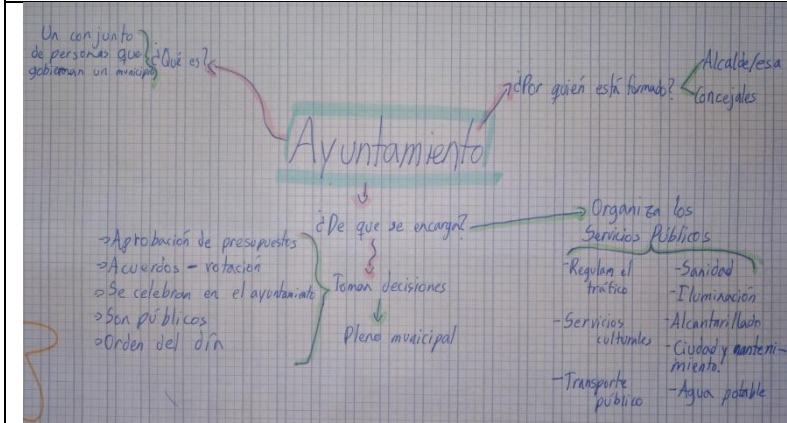 Un conjunto
de personas que
gobiernan un municipio
¿Qué es?
¿Por quién está formado?
Alcalde/esa
Concejales
Ayuntamiento
¿De que se encarga?
Organiza los
Servicios Públicos
-Regulan el
tráfico
-Servicios
culturales
-Transporte
público
-Sanidad
-Iluminación
-Alcantarillado
-Ciudad y manteni-
miento.
-Agua potable
Toman decisiones
Pleno municipal
→Aprobación de presupuestos
→Acuerdos - votación
→Se celebran en el ayuntamiento
→Son públicos
→Orden del día